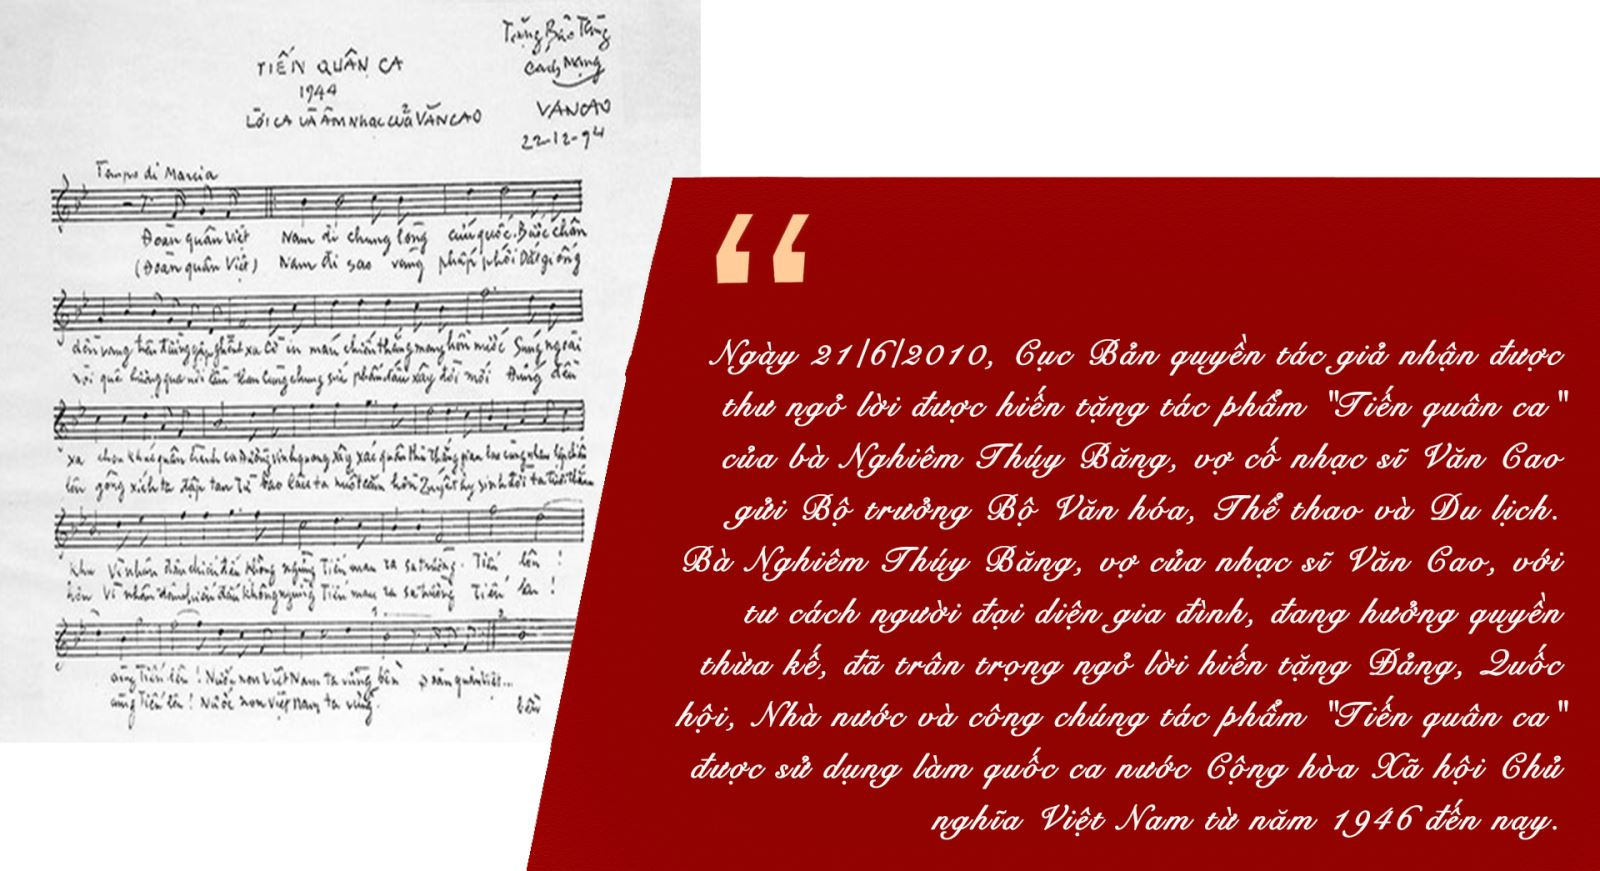 TIẾN QUÂN CA
1944
LỜI CA VÀ ÂM NHẠC CỦA VĂN CAO
Tặng Bảo Tàng
Cách Mạng
VANCAO
22-12-94
Tempo di Marcia
Đoàn quân Việt Nam đi chung lòng cứu quốc. Bước chân
(Đoàn quân Việt) Nam đi sao vàng phấp phới Dắt giống
dồn vang trên đường gập ghềnh xa Cờ in máu chiến thắng mang hồn nước Súng ngoài
nòi quê hương qua nơi lầm than Cùng chung sức phấn đấu xây đời mới Đứng đều
xa chen khúc quân hành ca Đường vinh quang xây xác quân thù Thắng gian lao cùng nhau lập chiến
lên gông xích ta đập tan Từ bao lâu ta nuốt căm hờn Quyết hy sinh đời ta tươi thắm
khu Vì nhân dân chiến đấu không ngừng Tiến mau ra sa trường. Tiến lên!
hơn Vì nhân dân chiến đấu không ngừng Tiến mau ra sa trường Tiến lên!
cùng Tiến lên! Nước non Việt Nam ta vững bền Đoàn quân Việt...
cùng Tiến lên! Nước non Việt Nam ta vững. bền
“
Ngày 21/6/2010, Cục Bản quyền tác giả nhận được
thư ngỏ lời được hiến tặng tác phẩm "Tiến quân ca"
của bà Nghiêm Thúy Băng, vợ cố nhạc sĩ Văn Cao
gửi Bộ trưởng Bộ Văn hóa, Thể thao và Du lịch.
Bà Nghiêm Thúy Băng, vợ của nhạc sĩ Văn Cao, với
tư cách người đại diện gia đình, đang hưởng quyền
thừa kế, đã trân trọng ngỏ lời hiến tặng Đảng, Quốc
hội, Nhà nước và công chúng tác phẩm "Tiến quân ca"
được sử dụng làm quốc ca nước Cộng hòa Xã hội Chủ
nghĩa Việt Nam từ năm 1946 đến nay.